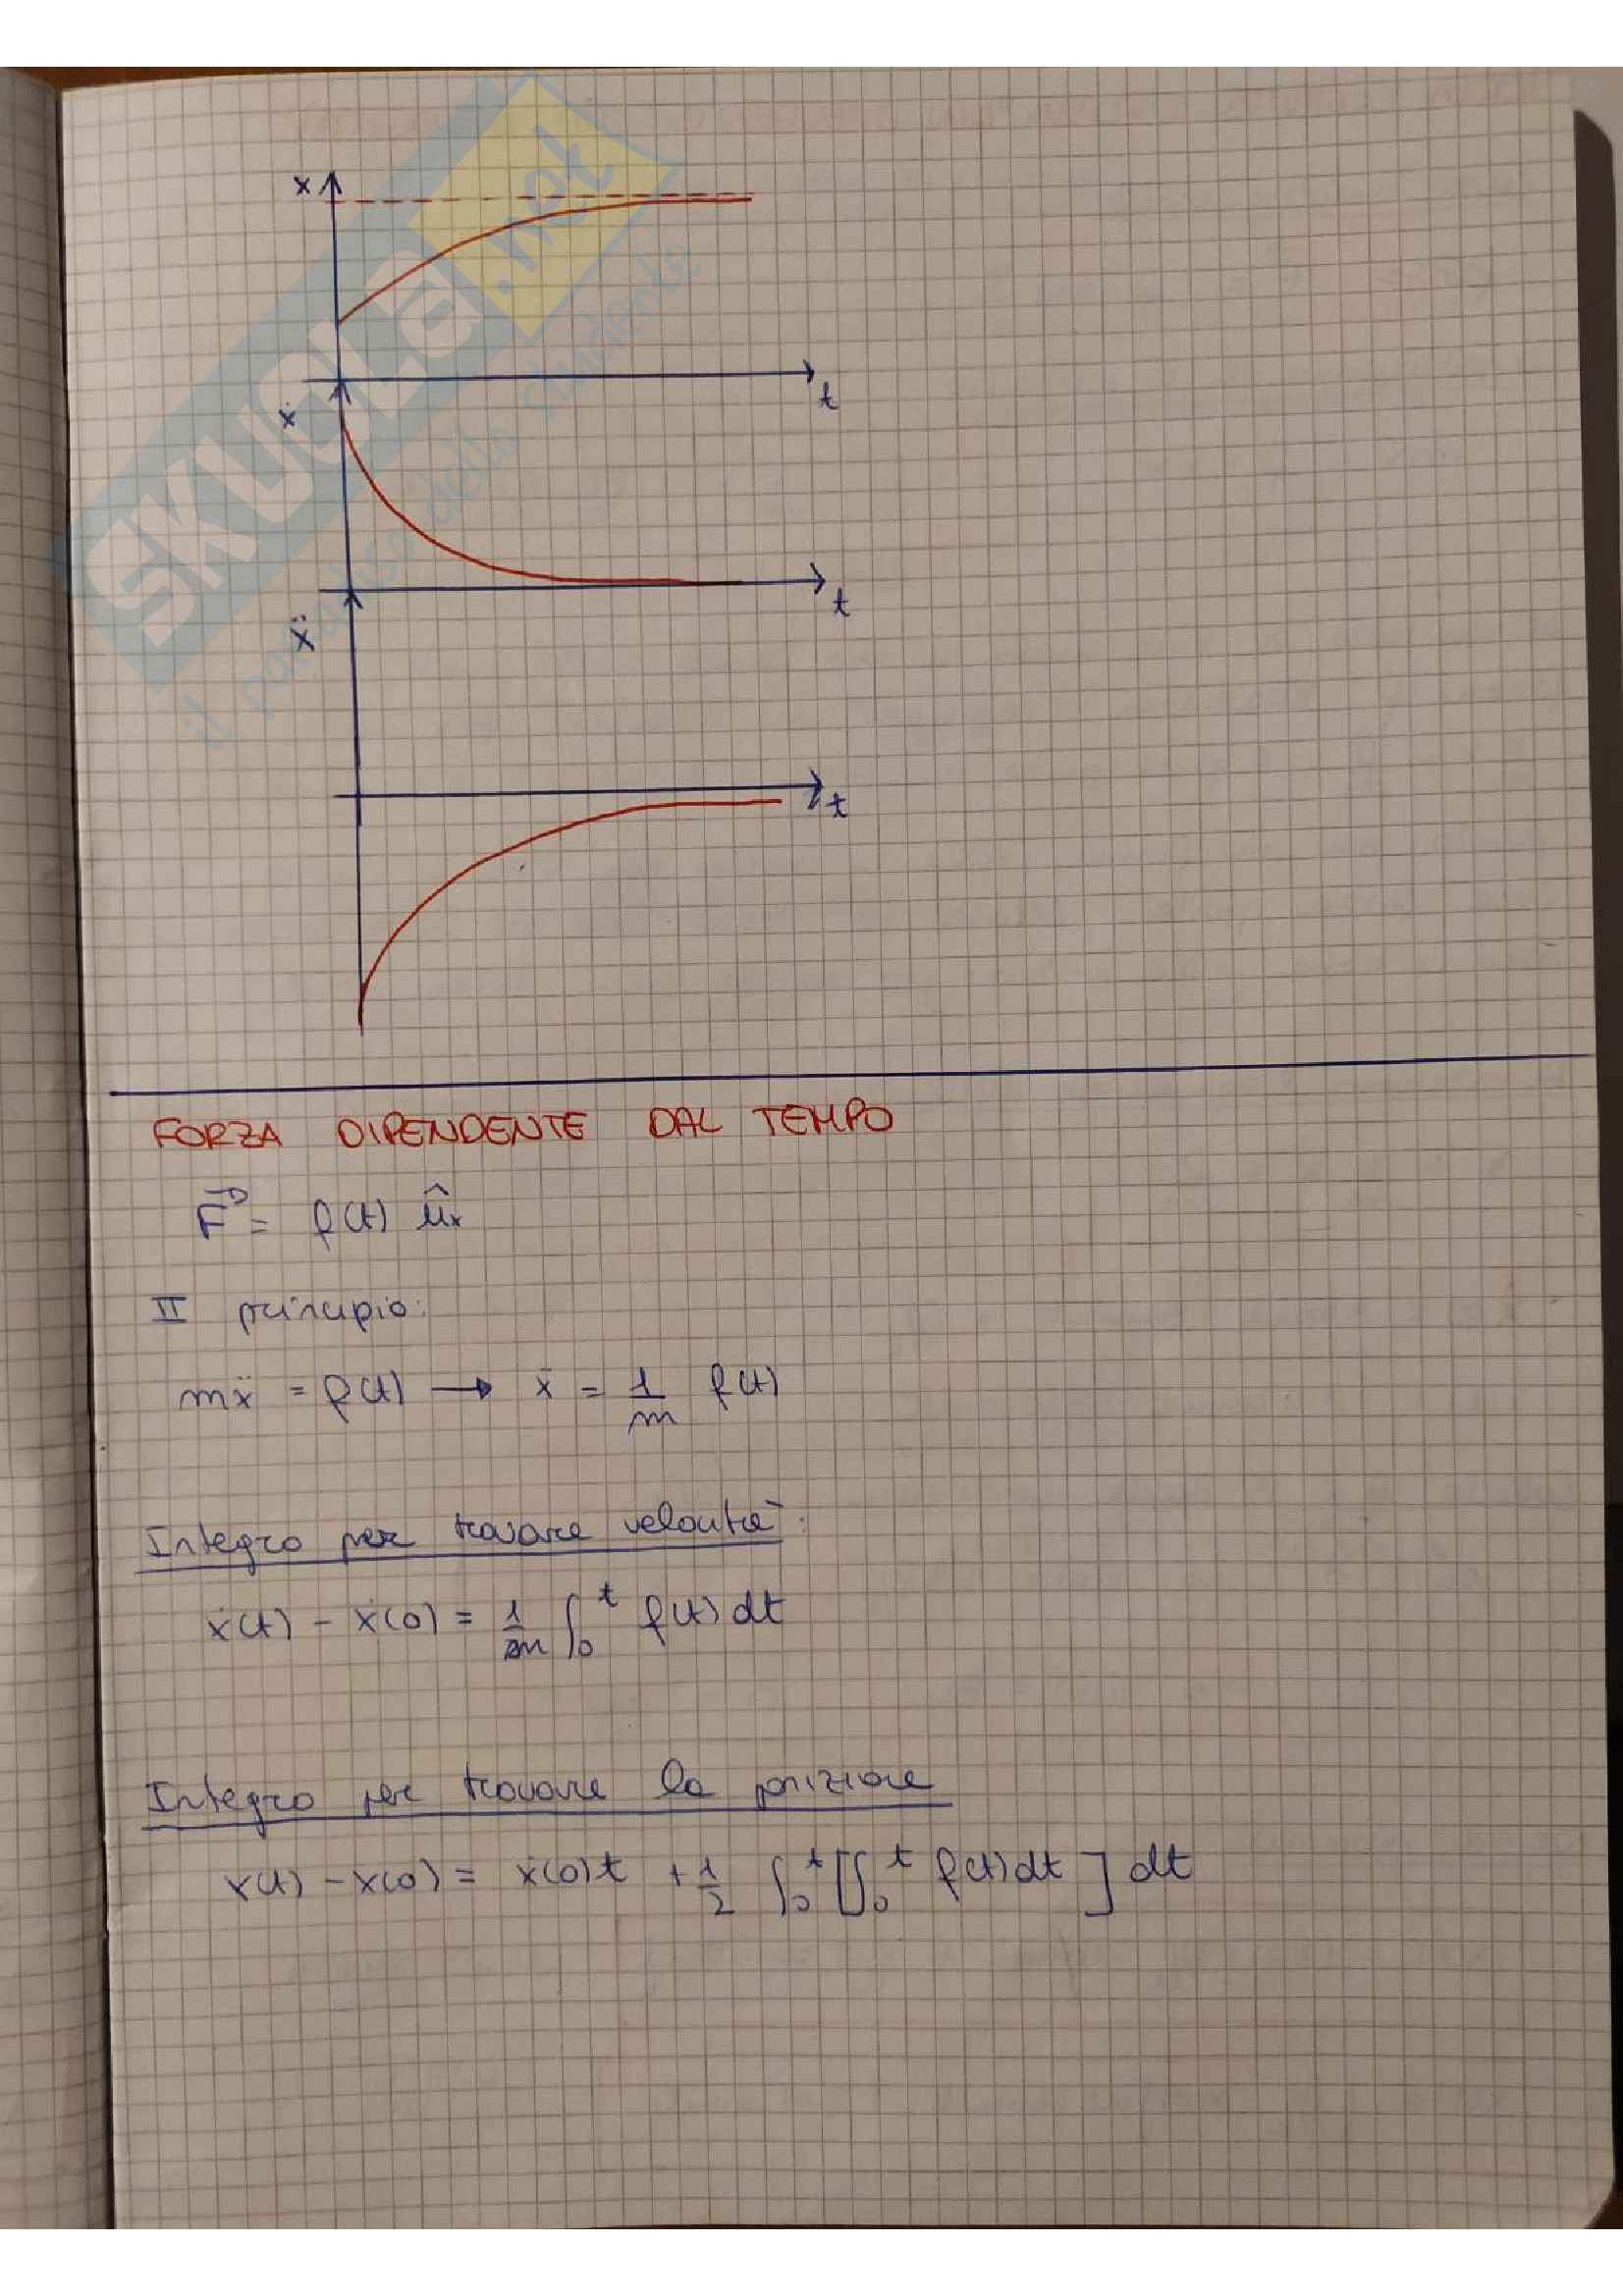 SKUOLA.net
il paradiso dello studente
x
t
ẋ
t
ẍ
t
FORZA DIPENDENTE DAL TEMPO
F⃗ = f(t) û_x
II principio:
mẍ = f(t) → ẍ = 1/m f(t)
Integro per trovare velocità:
ẋ(t) - ẋ(0) = 1/m ∫₀ᵗ f(t) dt
Integro per trovare la posizione
x(t) - x(0) = ẋ(0)t + 1/2 ∫₀ᵗ [∫₀ᵗ f(t) dt] dt